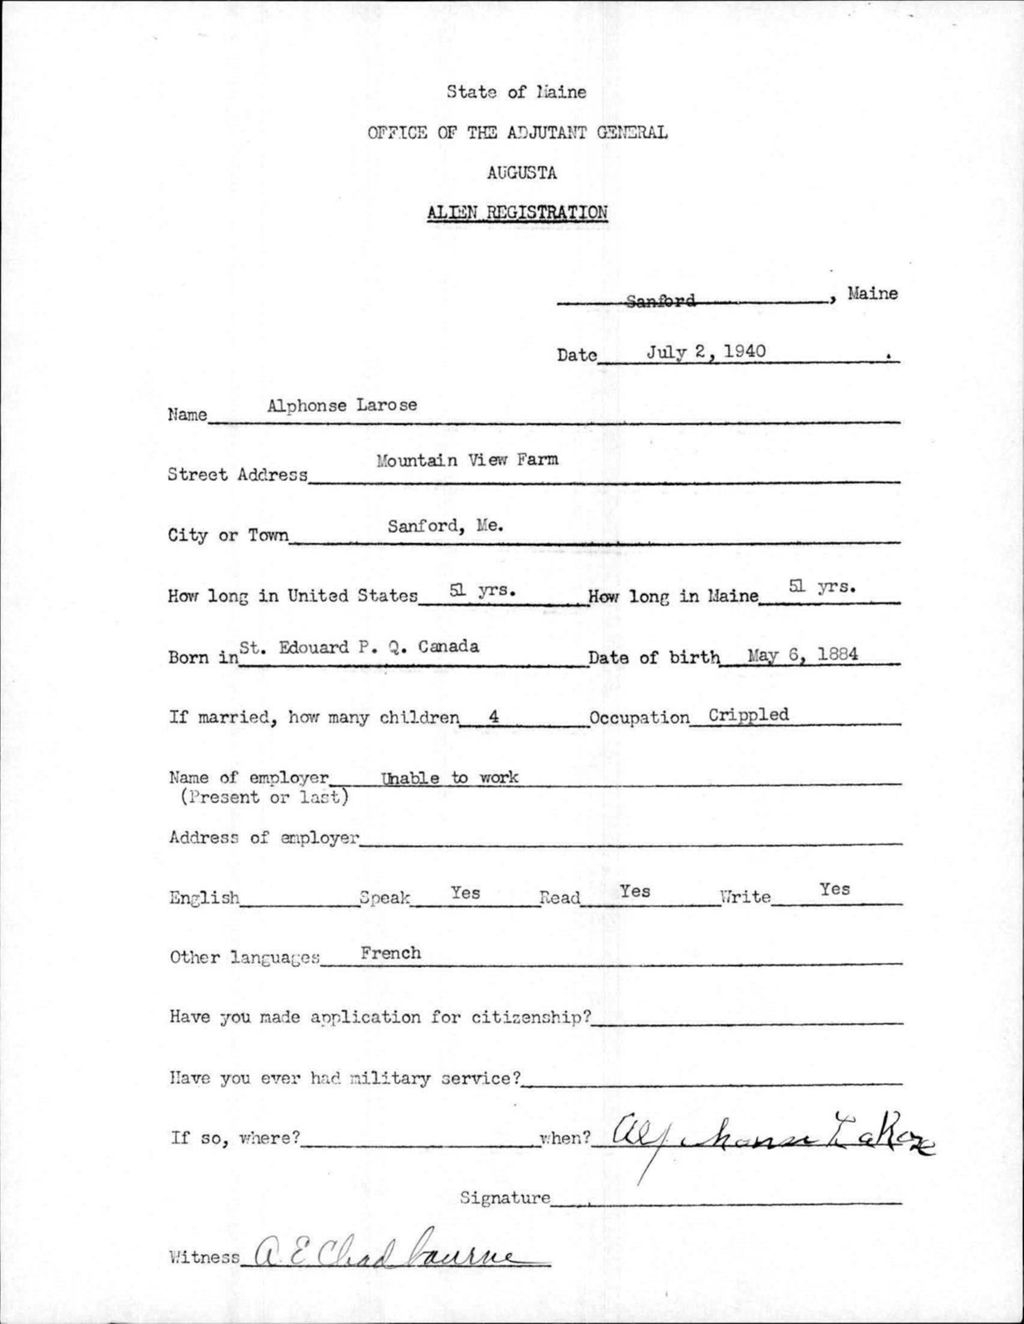 State of Maine
OFFICE OF THE ADJUTANT GENERAL
AUGUSTA
ALIEN REGISTRATION
Sanford, Maine
Date July 2, 1940.
Name Alphonse Larose
Street Address Mountain View Farm
City or Town Sanford, Me.
How long in United States 51 yrs. How long in Maine 51 yrs.
Born in St. Edouard P. Q. Canada Date of birth May 6, 1884
If married, how many children 4 Occupation Crippled
Name of employer Unable to work
(Present or last)
Address of employer
English Speak Yes Read Yes Write Yes
Other languages French
Have you made application for citizenship?
Have you ever had military service?
If so, where? when? Alphonse LaRose
Signature
Witness A. E. Chadbourne